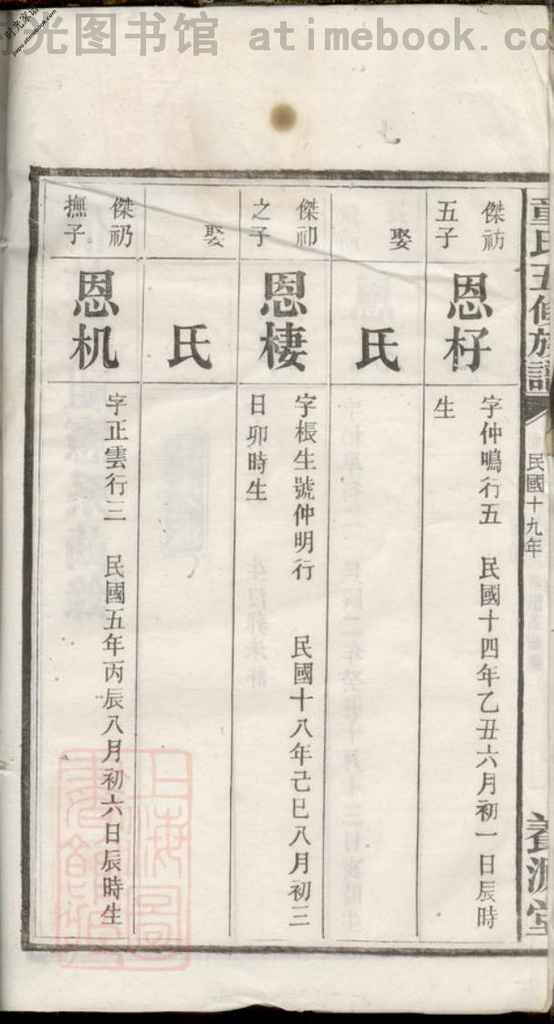 时光图书馆 atimebook.co
童氏五修族譜
民國十九年
養源堂
傑祊
五子
恩杍
字仲鳴行五 民國十四年乙丑六月初一日辰時
生
娶
氏
傑卬
之子
恩棲
字棖生號仲明行 民國十八年己巳八月初三
日卯時生
娶
氏
傑礽
撫子
恩机
字正雲行三 民國五年丙辰八月初六日辰時生
上海圖